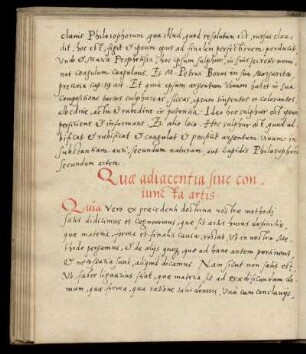 clauis Philosophorum, quæ claud, quod resolutum est, rursus clau
dit, hoc est, figit et ipsum opus ad finalem perfectionem perducit.
Unde et Maria Prophetissa, hoc ipsum sulphur, in suis sermonib. nomi
nat Coagulum Coagulans. Et M. Petrus Bonus in sua Margarita
preciosa cap. 19 ait. Et quia ipsum argentum Viuum habet in sua
Compositione partes sulphureas siccas, ipsum tingentes in colorantes
albedine, actu et rubedine in potentia. Ideo hoc sulphur est ipsum
perficiens et informans. Et alio loco. Hoc sulphur est quod
ficat et rubificat et coagulat et perficit argentum Viuum in
substantiam auri, secundum naturam, aut Lapidis Philosophorum
secundum artem.
Quæ adiacentia siue con
iunct artis
Quia vero ex præcedenti doctrina nostræ methodi
satis didicimus et cognouimus, quæ sit artis huius
quæ materia, forma et finalis causa, visum est in nostra, Me
thodo pergamus, et de alijs quoque, quæ ad hanc artem pertinent
et necessaria sunt, aliquid dicamus. Nam sicut non satis est,
Vt faber lignarius sciat, quæ materia sit ad exædificandam do
mum, quæ forma, qua ratione tabulæ Vna cum conclauijs,